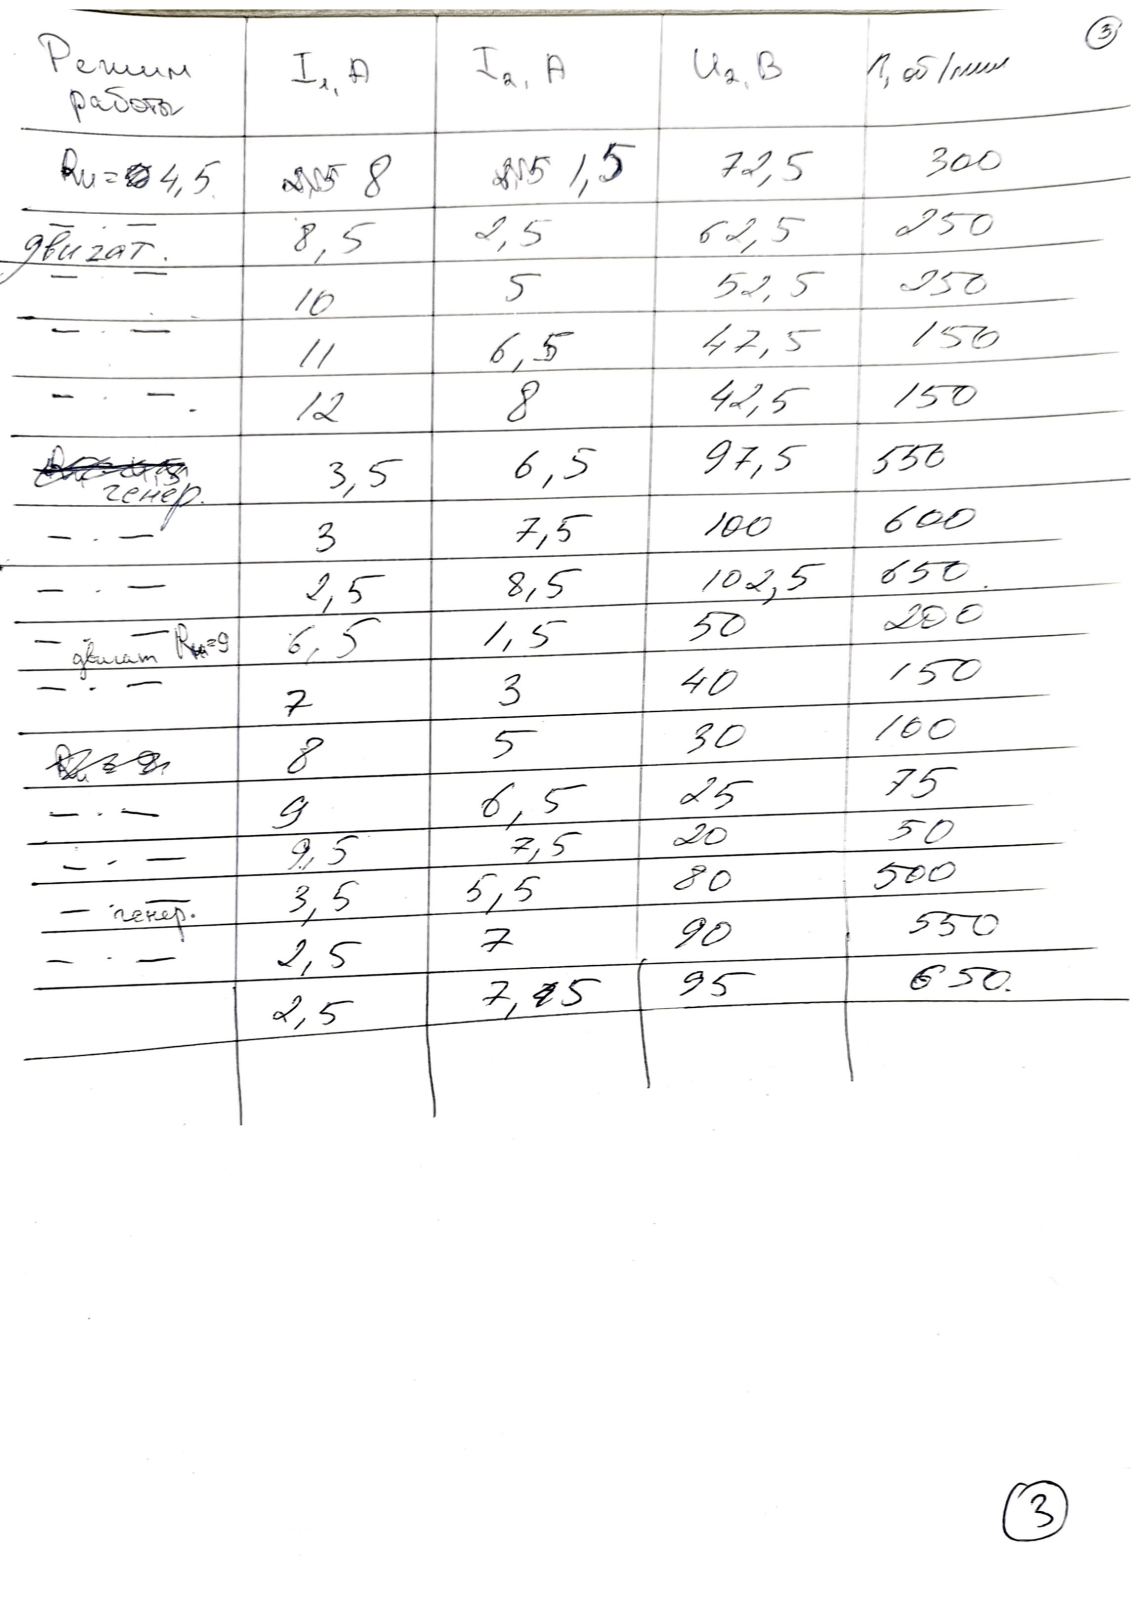 3
Режим I₁, А I₂, А U₂, В n, об/мин
работы
Rн = 4,5 8 1,5 72,5 300
— · —
двигат. 8,5 2,5 62,5 250
— · — 10 5 52,5 250
— · — 11 6,5 47,5 150
— · — 12 8 42,5 150
генер. 3,5 6,5 97,5 550
— · — 3 7,5 100 600
— · — 2,5 8,5 102,5 650
— · —
двигат Rн=9 6,5 1,5 50 200
— · — 7 3 40 150
8 5 30 100
— · — 9 6,5 25 75
— · — 9,5 7,5 20 50
— генер. 3,5 5,5 80 500
— · — 2,5 7 90 550
2,5 7,5 95 650.
3